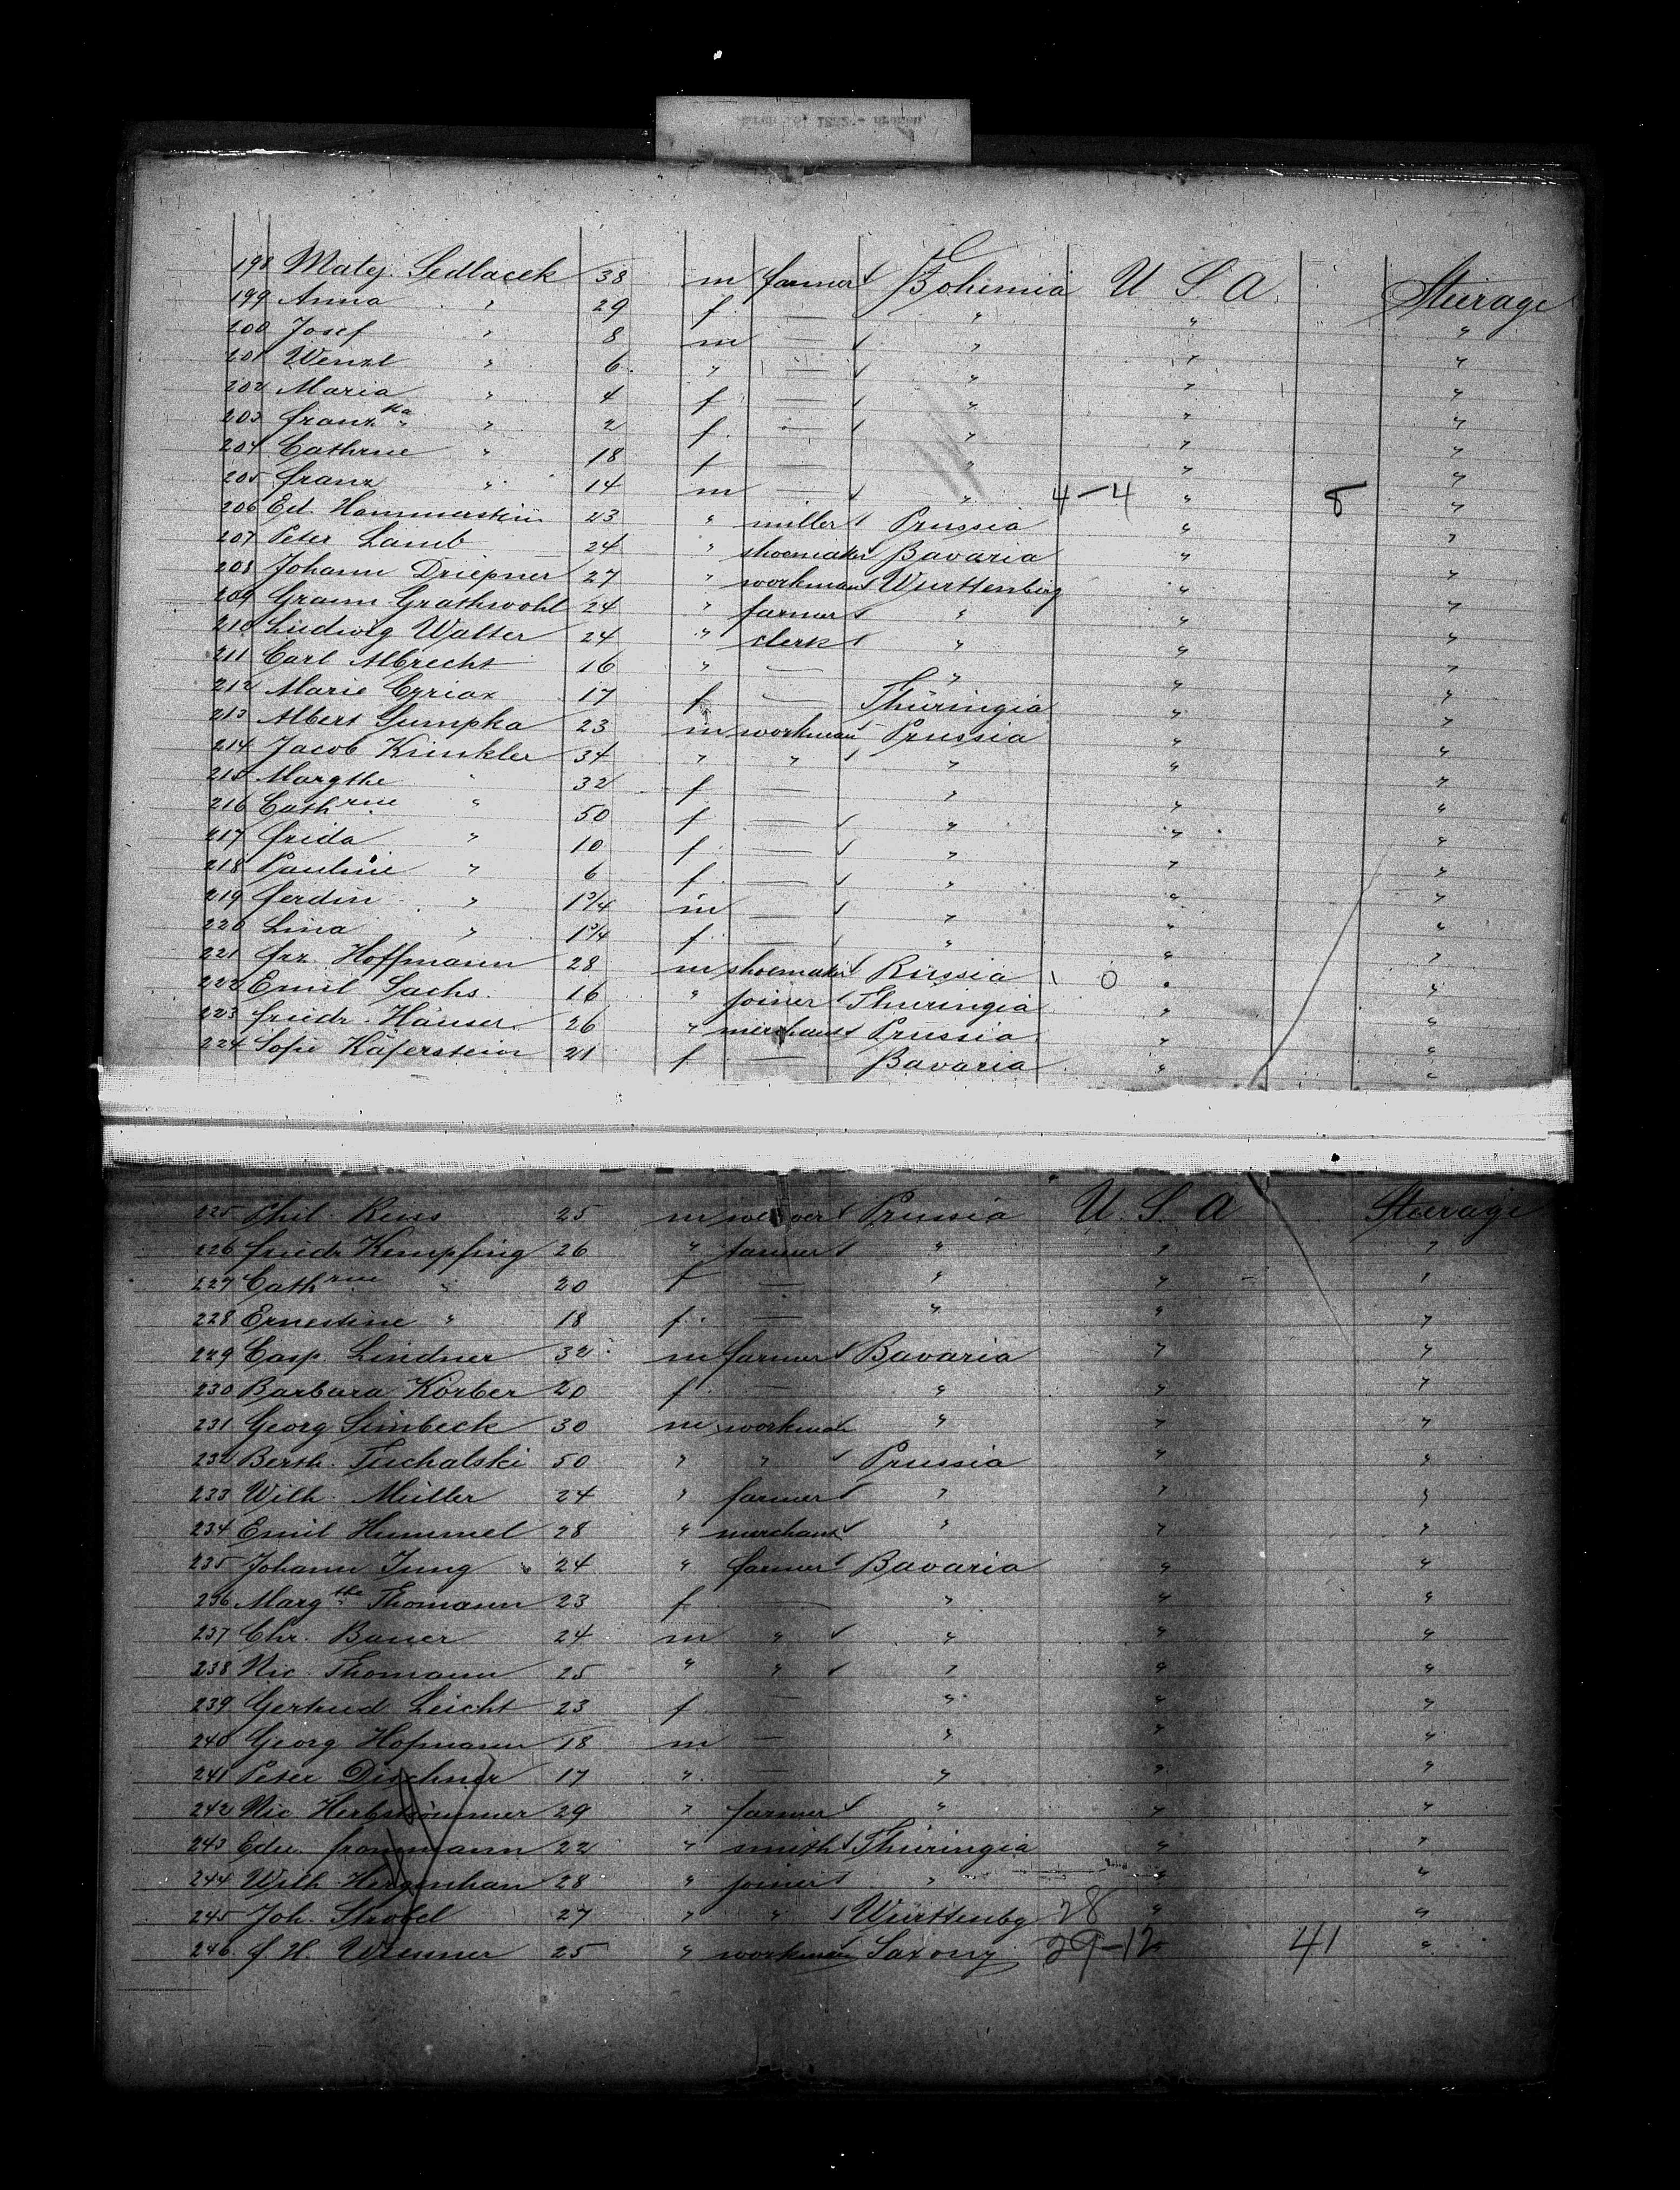 198 Matej. Sedlacek 38 m farmer Bohemia U S. A Steerage
199 Anna " 29 f. — " " "
200 Josef " 8 m — " " "
201 Wenzl " 6 " — " " "
202 Maria " 4 f — " " "
203 Franzka " 2 f. — " " "
204 Cathrne " 18 f — " " "
205 Franz " 14 m — " 4-4 " 8 "
206 Ed. Hammerstein 23 " miller Prussia " "
207 Peter Lamb 24 " shoemaker Bavaria " "
208 Johann Driepner 27 " workman Wurttenberg " "
209 Grathwohl 24 " farmer " " "
210 Ludwig Walter 24 " clerk " " "
211 Carl Albrecht 16 " — " " "
212 Marie Cyriax 17 f — Thüringia " "
213 Albert Gumpka 23 m workman Prussia " "
214 Jacob Kunkler 34 " " " " "
215 Margthe " 32 f — " " "
216 Cathrine " 50 f — " " "
217 Frida " 10 f — " " "
218 Pauline " 6 f. — " " "
219 Ferdin " 1 3/4 m — " " "
220 Lina " 1 3/4 f. — " " "
221 Frz. Hoffmann 28 m shoemaker Russia 0 " "
222 Emil Sachs. 16 " joiner Thuringia " "
223 Friedr. Häuser. 26 " merchant Prussia " "
224 Sofie Käferstein 21 f — Bavaria " "
225 Phil. Reuss 25 m weaver Prussia U. S. A Steerage
226 Friedr Kempfing 26 " farmer " " "
227 Cathrine " 20 f — " " "
228 Ernestine " 18 f. — " " "
229 Casp. Lindner 32 m farmer Bavaria " "
230 Barbara Körber 20 f. — " " "
231 Georg Simbeck 30 m workman " " "
232 Berth. Tuchalski 50 " " Prussia " "
233 Wilh. Müller 24 " farmer " " "
234 Emil Hummel 28 " merchant " " "
235 Johann Jung 24 " farmer Bavaria " "
236 Margthe Thomann 23 f — " " "
237 Chr. Bauer 24 m " " " "
238 Nic. Thomann 25 " " " " "
239 Gertrud Leicht 23 f — " " "
240 Georg Hofmann 18 m — " " "
241 Peter Dischner 17 " — " " "
242 Nic. Herbstsommer 29 " farmer " " "
243 Edw. Frommann 22 " smith Thüringia " "
244 Wilh Hergenhan 28 " joiner " " "
245 Joh. Strobel 27 " " Württenbg 28 " "
246 F. H. 25 " workman Saxony 29-12 41 "